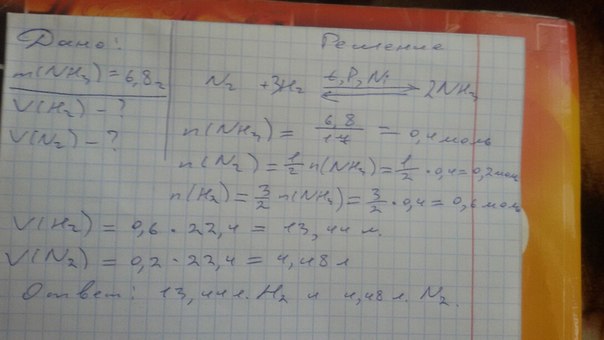 Дано: Решение
m(NH₃) = 6,8г
N₂ + 3H₂ ⇄ 2NH₃
t, P, Ni
V(H₂) – ?
V(N₂) – ?
n(NH₃) = 6,8/17 = 0,4 моль
n(N₂) = 1/2 n(NH₃) = 1/2 · 0,4 = 0,2 моль
n(H₂) = 3/2 n(NH₃) = 3/2 · 0,4 = 0,6 моль
V(H₂) = 0,6 · 22,4 = 13,44 л.
V(N₂) = 0,2 · 22,4 = 4,48 л
Ответ: 13,44л. H₂ и 4,48 л. N₂.